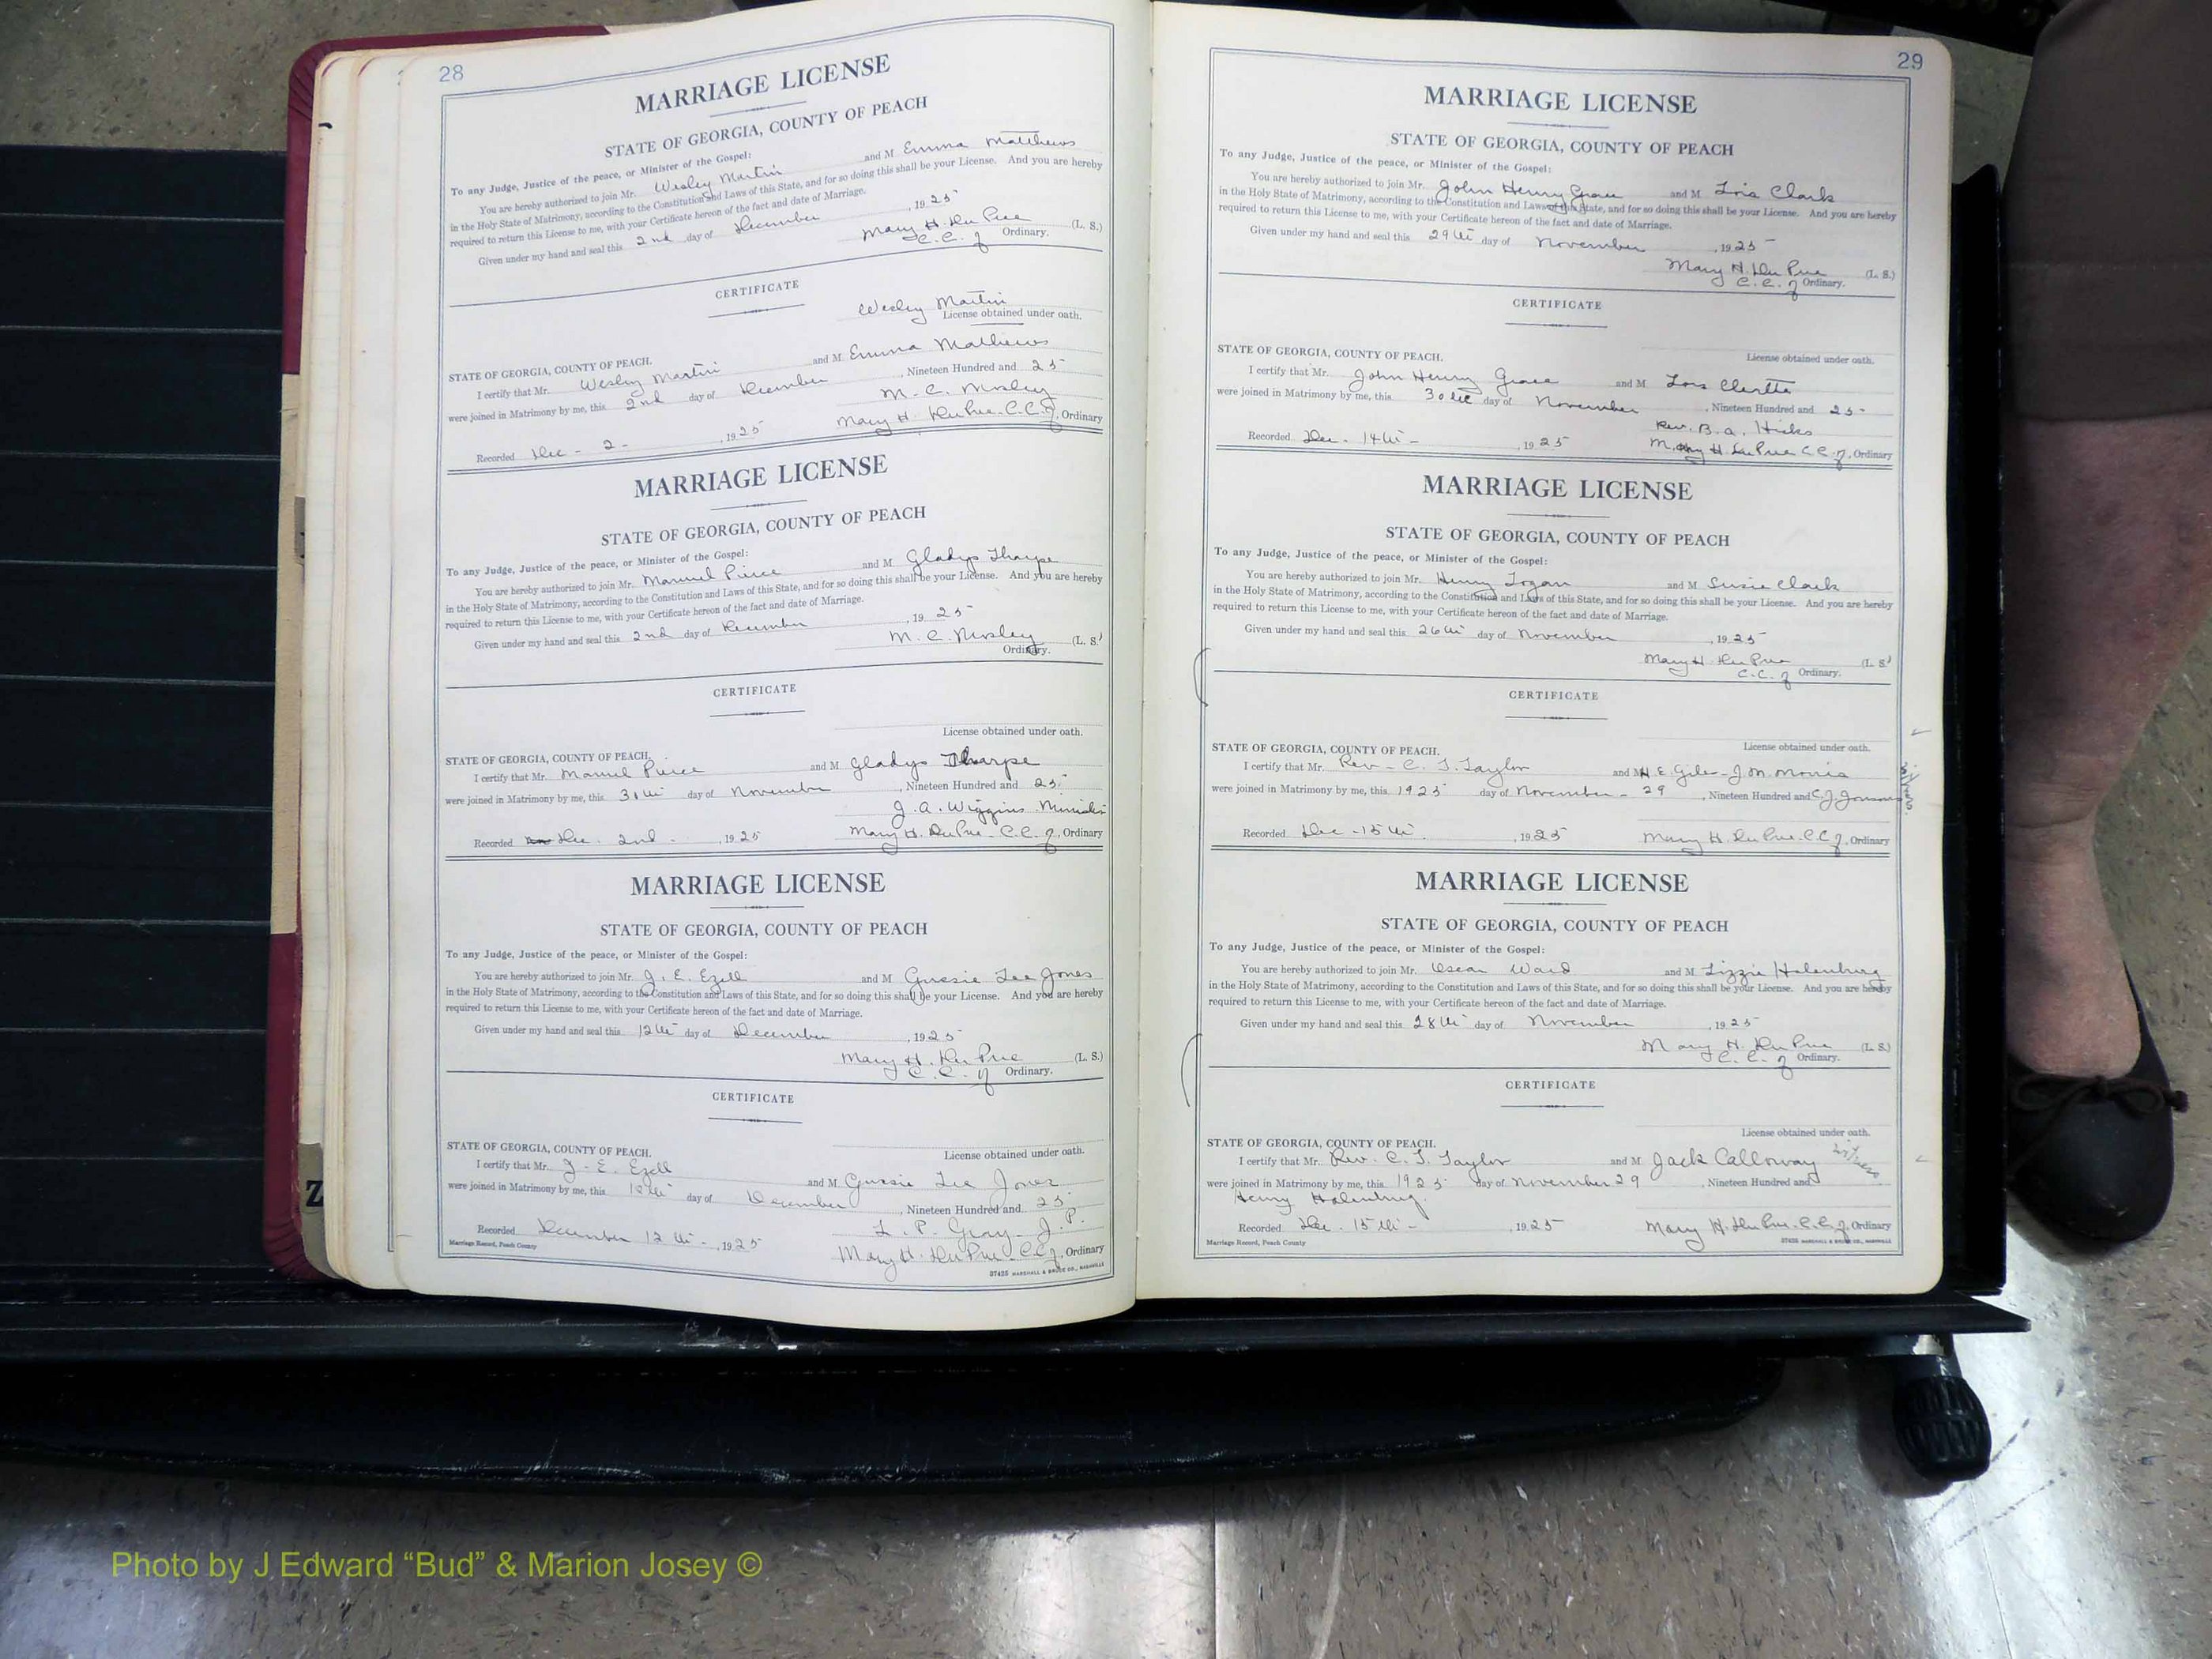 28
MARRIAGE LICENSE
STATE OF GEORGIA, COUNTY OF PEACH
To any Judge, Justice of the peace, or Minister of the Gospel:
You are hereby authorized to join Mr. Wesley Martin and M Emma Matthews
in the Holy State of Matrimony, according to the Constitution and Laws of this State, and for so doing this shall be your License. And you are hereby
required to return this License to me, with your Certificate hereon of the fact and date of Marriage.
Given under my hand and seal this 2nd day of December, 1925
Mary H. Du Pree (L. S.)
C. C. O. Ordinary.
CERTIFICATE
Wesley Martin
License obtained under oath.
STATE OF GEORGIA, COUNTY OF PEACH.
I certify that Mr. Wesley Martin and M Emma Mathews
were joined in Matrimony by me, this 2nd day of December, Nineteen Hundred and 25
M. C. Mosley
Recorded Dec - 2 - , 1925 Mary H. DuPree C.C.O, Ordinary
MARRIAGE LICENSE
STATE OF GEORGIA, COUNTY OF PEACH
To any Judge, Justice of the peace, or Minister of the Gospel:
You are hereby authorized to join Mr. Manuel Pierce and M Gladys Tharpe
in the Holy State of Matrimony, according to the Constitution and Laws of this State, and for so doing this shall be your License. And you are hereby
required to return this License to me, with your Certificate hereon of the fact and date of Marriage.
Given under my hand and seal this 2nd day of December, 1925
M. C. Mosley (L. S.)
Ordinary.
CERTIFICATE
License obtained under oath.
STATE OF GEORGIA, COUNTY OF PEACH.
I certify that Mr. Manuel Pierce and M Gladys Tharpe
were joined in Matrimony by me, this day of November, Nineteen Hundred and 25
J. A. Wiggins Minister
Recorded Dec. 2nd - , 1925 Mary H. DuPree - C.C.O, Ordinary
MARRIAGE LICENSE
STATE OF GEORGIA, COUNTY OF PEACH
To any Judge, Justice of the peace, or Minister of the Gospel:
You are hereby authorized to join Mr. J. E. Ezell and M Gussie Lee Jones
in the Holy State of Matrimony, according to the Constitution and Laws of this State, and for so doing this shall be your License. And you are hereby
required to return this License to me, with your Certificate hereon of the fact and date of Marriage.
Given under my hand and seal this 12th day of December, 1925
Mary H. Du Pree (L. S.)
C. C. O. Ordinary.
CERTIFICATE
License obtained under oath.
STATE OF GEORGIA, COUNTY OF PEACH.
I certify that Mr. J. E. Ezell and M Gussie Lee Jones
were joined in Matrimony by me, this 12th day of December, Nineteen Hundred and 25
L. P. Gray - J. P.
Recorded December 12th -, 1925 Mary H. DuPree C.C.O, Ordinary
Marriage Record, Peach County 37425 MARSHALL & BRUCE CO., NASHVILLE
29
MARRIAGE LICENSE
STATE OF GEORGIA, COUNTY OF PEACH
To any Judge, Justice of the peace, or Minister of the Gospel:
You are hereby authorized to join Mr. John Henry Grace and M Lois Clark
in the Holy State of Matrimony, according to the Constitution and Laws of this State, and for so doing this shall be your License. And you are hereby
required to return this License to me, with your Certificate hereon of the fact and date of Marriage.
Given under my hand and seal this 29th day of November, 1925
Mary H. Du Pree (L. S.)
C. C. O. Ordinary.
CERTIFICATE
License obtained under oath.
STATE OF GEORGIA, COUNTY OF PEACH.
I certify that Mr. John Henry Grace and M Lois
were joined in Matrimony by me, this day of November, Nineteen Hundred and 25-
Rev. B. A. Hicks
Recorded Dec - 14th - , 1925 Mary H. DuPree C.C.O, Ordinary
MARRIAGE LICENSE
STATE OF GEORGIA, COUNTY OF PEACH
To any Judge, Justice of the peace, or Minister of the Gospel:
You are hereby authorized to join Mr. Henry Logan and M Susie Clark
in the Holy State of Matrimony, according to the Constitution and Laws of this State, and for so doing this shall be your License. And you are hereby
required to return this License to me, with your Certificate hereon of the fact and date of Marriage.
Given under my hand and seal this 26th day of November, 1925
Mary H. Du Pree (L. S.)
C.C. O. Ordinary.
CERTIFICATE
License obtained under oath.
STATE OF GEORGIA, COUNTY OF PEACH.
I certify that Mr. Rev - C. T. Taylor and M H. E. Giles - J. M. Morris
were joined in Matrimony by me, this 1925 day of November - 29, Nineteen Hundred and C. J.
Recorded Dec - 15th., 1925 Mary H. Du Pree C.C.O, Ordinary
MARRIAGE LICENSE
STATE OF GEORGIA, COUNTY OF PEACH
To any Judge, Justice of the peace, or Minister of the Gospel:
You are hereby authorized to join Mr. Oscar Ward and M Lizzie Holenburg
in the Holy State of Matrimony, according to the Constitution and Laws of this State, and for so doing this shall be your License. And you are hereby
required to return this License to me, with your Certificate hereon of the fact and date of Marriage.
Given under my hand and seal this 28th day of November, 1925
Mary H. Du Pree (L. S.)
C. C. O. Ordinary.
CERTIFICATE
License obtained under oath.
STATE OF GEORGIA, COUNTY OF PEACH.
I certify that Mr. Rev. C. T. Taylor and M Jack Calloway witness
were joined in Matrimony by me, this 1925 day of November 29, Nineteen Hundred and
Henry Holenburg.
Recorded Dec. 15th - , 1925 Mary H. DuPree C.C.O, Ordinary
Marriage Record, Peach County 37425 MARSHALL & BRUCE CO., NASHVILLE
Z
Photo by J Edward “Bud” & Marion Josey ©